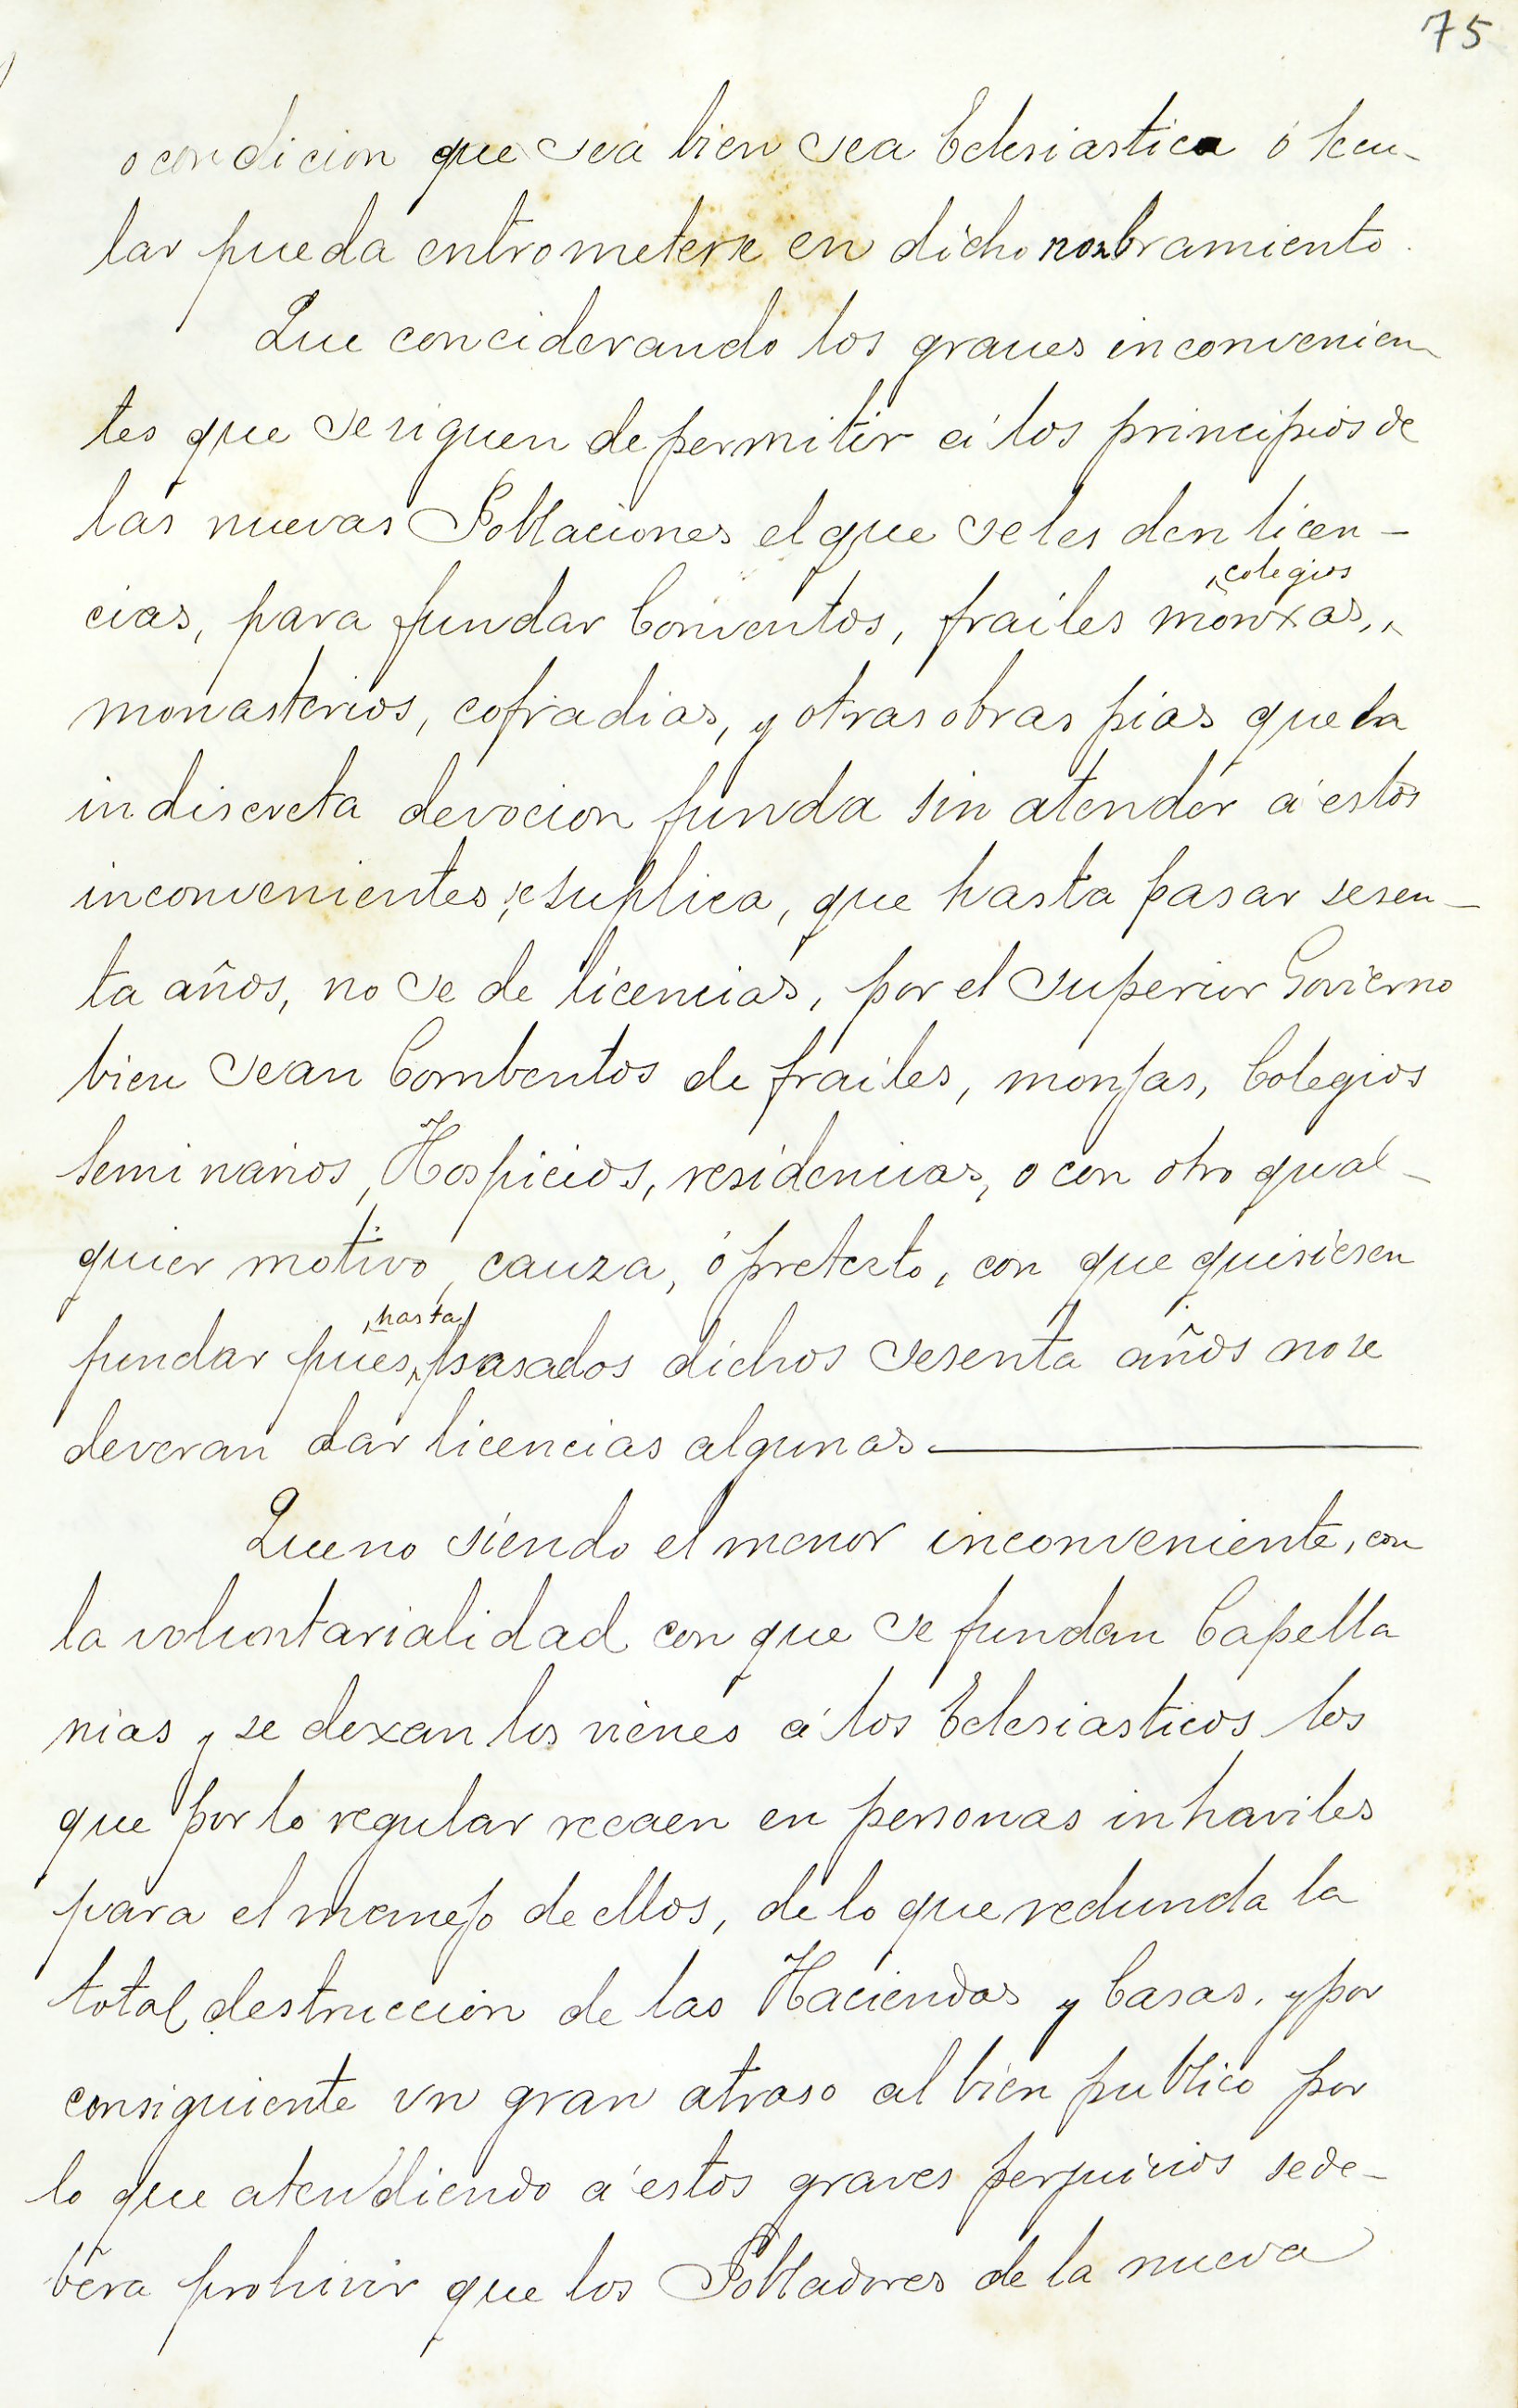 75
o condicion que sea bien sea Eclesiastica ó secu-
lar pueda entrometerse en dicho nombramiento.
Que conciderando los graues inconvenien
tes que se siguen de permitir á los principios de
las nuevas Poblaciones el que se les den licen-
colegios
cias, para fundar Conventos, frailes monxas,
monasterios, cofradias, y otras obras pias que la
indiscreta devocion funda sin atender á estos
inconvenientes, se suplica, que hasta pasar sesen-
ta años, no se de licencias, por el superior Govierno
bien sean Combentos de frailes, monjas, Colegios
seminarios, Hospicios, residencias, o con otro qual-
quier motivo, cauza, ó pretexto, con que quisiesen
hasta
fundar pues, pasados dichos sesenta años no se
deveran dar licencias algunas
Que no siendo el menor inconveniente, con
la voluntarialidad con que se fundan Capella
nias y se dexan los vienes á los Eclesiasticos los
que por lo regular recaen en personas inhaviles
para el manejo de ellos, de lo que redunda la
total destruccion de las Haciendas y Casas, y por
consiguiente vn gran atraso al bien publico por
lo que atendiendo á estos graves perjuicios se de-
bera prohivir que los Pobladores de la nueva